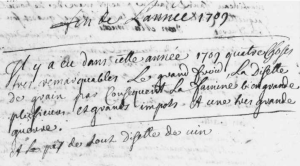 fin de l'année 1709
Il y a eu dans cette année 1709 quatre choses
tres remarquables Le grand froid, La disette
de grain par consequent La famine tres grande
plusieurs et grands impots et une tres grande
guerre
et le pis de tout disette de vin